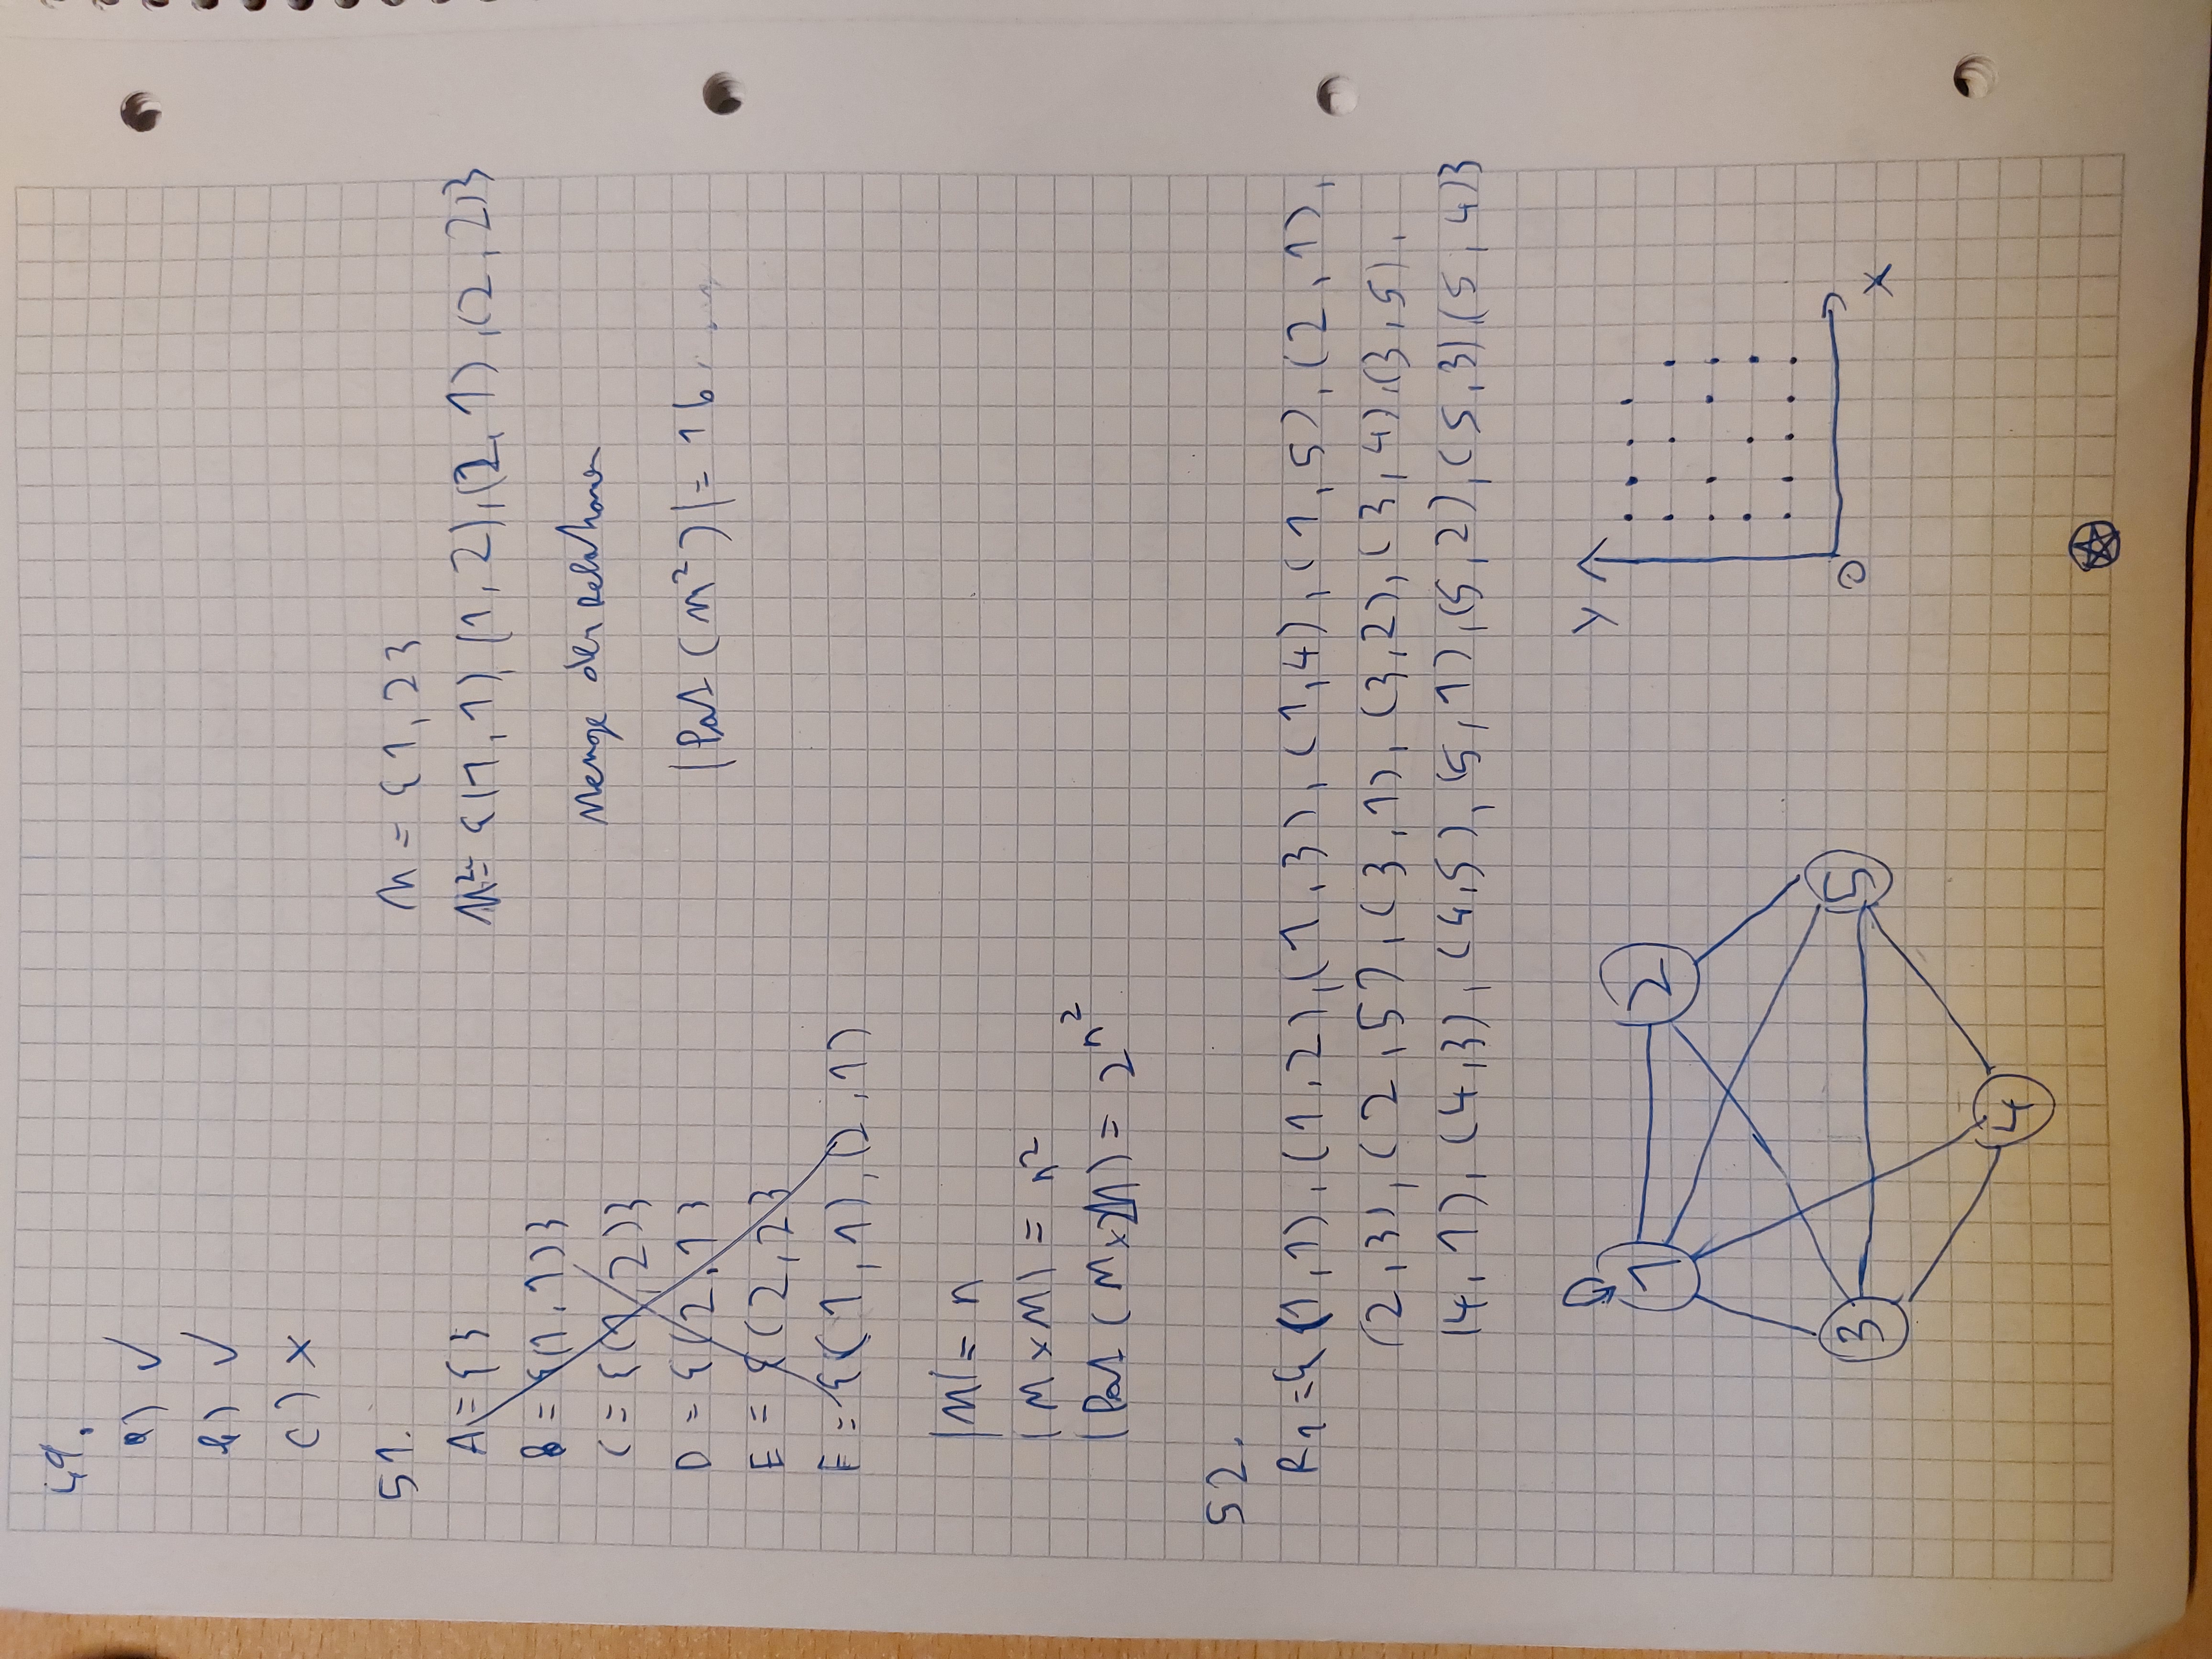 49.
a) ✓
b) ✓
c) ×
51.
A = { }
B = {(1,1)}
C = {(1,2)}
D = {(2,1}
E = {(2,2}
F = {(1,1), (2,1)
M = {1,2}
M² = {(1,1) (1,2), (2,1), (2,2)}
Menge der Relationen
|Pot (M²)| = 16
|M| = n
|M×M| = n²
|Pot (M×M) = 2^n²
52.
R₁ = { (1,1), (1,2), (1,3), (1,4), (1,5), (2,1),
(2,3), (2,5), (3,1), (3,2), (3,4), (3,5),
(4,1), (4,3), (4,5), (5,1), (5,2), (5,3) (5,4)}
1
2
3
5
4
Y
0
X